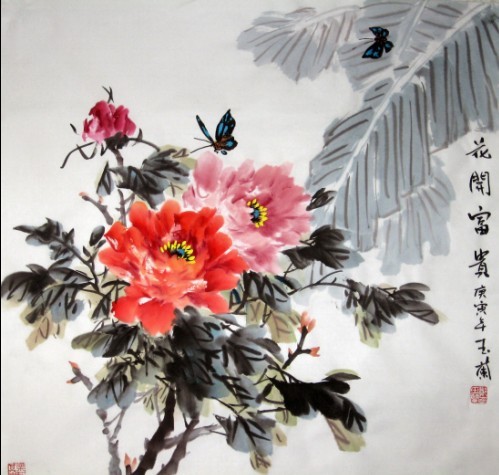 花開富貴
庚寅年玉蘭